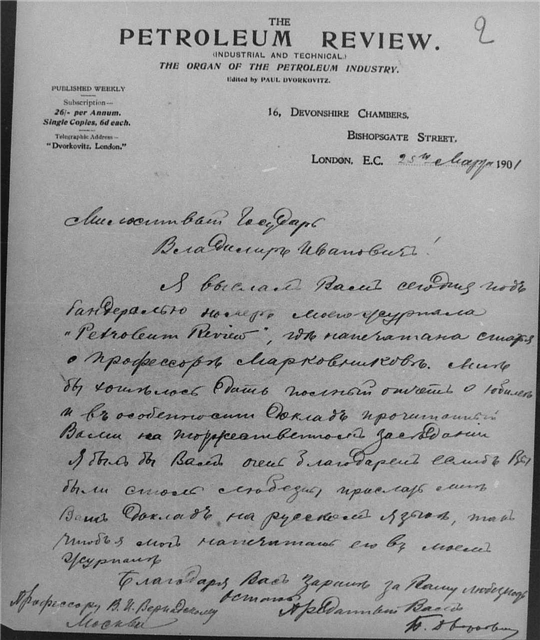 2
THE
PETROLEUM REVIEW.
(INDUSTRIAL AND TECHNICAL.)
THE ORGAN OF THE PETROLEUM INDUSTRY.
Edited by PAUL DVORKOVITZ.
PUBLISHED WEEKLY
Subscription—
26/- per Annum.
Single Copies, 6d each.
Telegraphic Address—
"Dvorkovitz, London."
16, DEVONSHIRE CHAMBERS,
BISHOPSGATE STREET,
LONDON, E.C. 25го Марта 1901
Милостивый Государь
Владимиръ Ивановичъ!
Я выслалъ Вамъ сегодня подъ
бандеролью номеръ моего журнала
"Petroleum Review", гдѣ напечатана статья
о профессорѣ Марковниковѣ. Мнѣ
бы хотѣлось дать полный отчетъ о юбилеѣ
и въ особенности докладъ прочитанный
Вами на торжественномъ засѣданіи
Я былъ бы Вамъ очень благодаренъ еслибъ Вы
были столь любезны прислать мнѣ
Вашъ докладъ на русскомъ языкѣ, такъ
чтобъ я могъ напечатать его въ моемъ
журналѣ
Благодаря Васъ заранѣе за Вашу любезность
остаюсь
Преданный Вамъ
П. Дворковичъ
Профессору В. И. Вернадскому
Москва